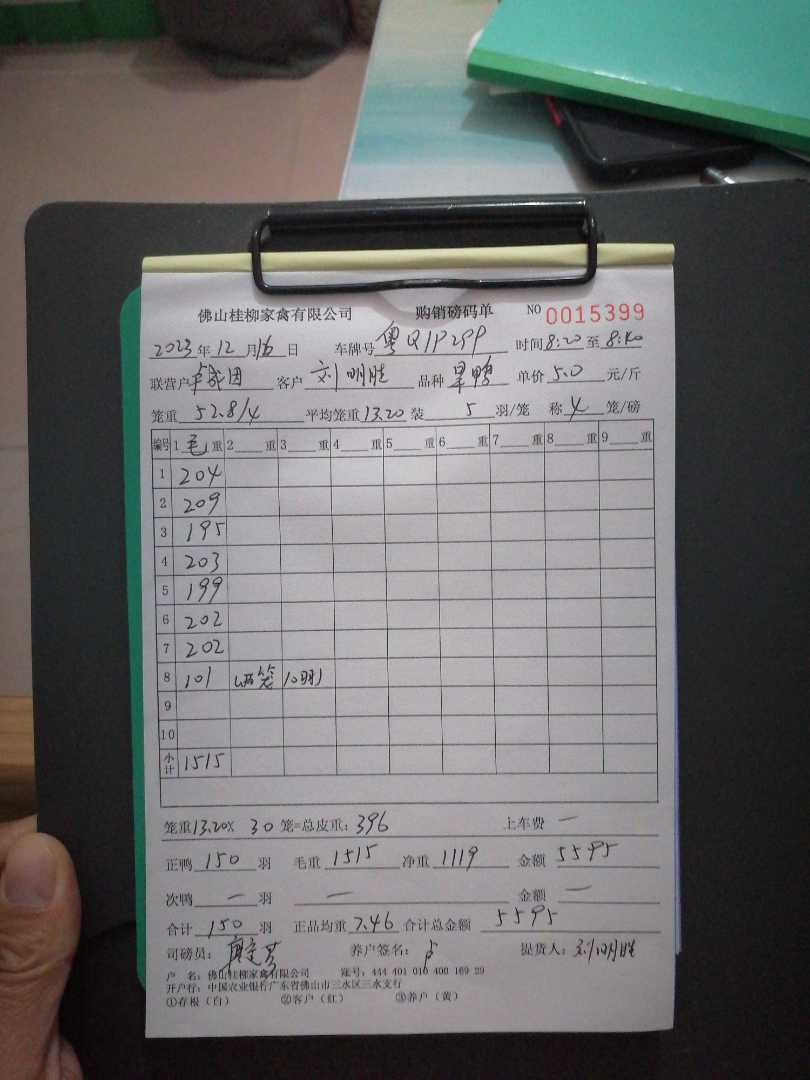 佛山桂柳家禽有限公司 购销磅码单 NO 0015399
2023年12月16日 车牌号 粤Q1P299 时间8:20至8:40
联营户 客户 刘明胜 品种 旱鸭 单价 5.0 元/斤
笼重 52.8/4 平均笼重13.20 装 5 羽/笼 称 4 笼/磅
编号 1 毛 重 2 重 3 重 4 重 5 重 6 重 7 重 8 重 9 重
1 204
2 209
3 195
4 203
5 199
6 202
7 202
8 101 笼 10羽
9
10
小计 1515
笼重13.20X 30 笼=总皮重: 396 上车费 一
正鸭 150 羽 毛重 1515 净重 1119 金额 5595
次鸭 一 羽 一 金额 一
合计 150 羽 正品均重 7.46 合计总金额 5595
司磅员: 养户签名: 提货人: 刘明胜
户 名: 佛山桂柳家禽有限公司 账号: 444 401 010 400 169 29
开户行: 中国农业银行广东省佛山市三水区三水支行
①存根（白） ②客户（红） ③养户（黄）